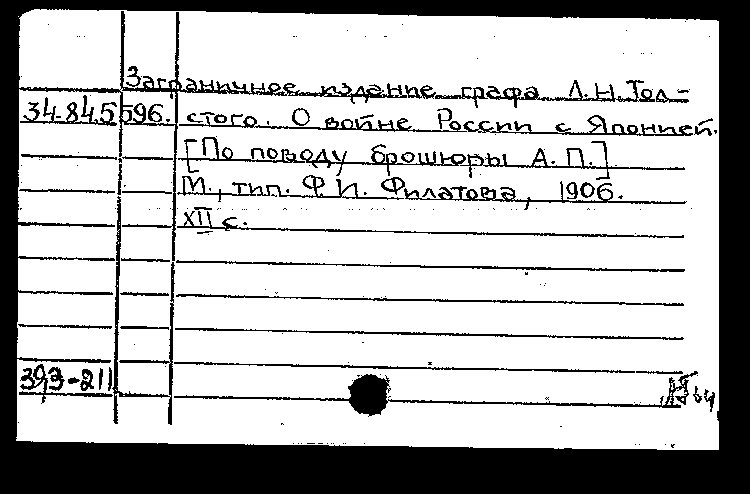 Заграничное издание графа Л.Н.Тол-
34.845 596. стого. О войне России с Японией.
[По поводу брошюры А.П.]
М., тип. Ф.И. Филатова, 1906.
XII с.
393-211